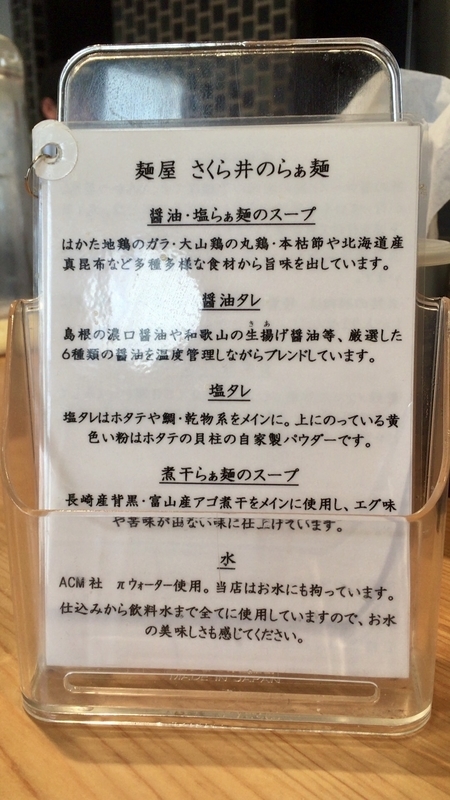 麺屋 さくら井のらぁ麺
醤油・塩らぁ麺のスープ
はかた地鶏のガラ・大山鶏の丸鶏・本枯節や北海道産
真昆布など多種多様な食材から旨味を出しています。
醤油タレ
島根の濃口醤油や和歌山の生揚げ醤油等、厳選した
6種類の醤油を温度管理しながらブレンドしています。
塩タレ
塩タレはホタテや鯛・乾物系をメインに。上にのっている黄
色い粉はホタテの貝柱の自家製パウダーです。
煮干らぁ麺のスープ
長崎産背黒・富山産アゴ煮干をメインに使用し、エグ味
や苦味が出ない味に仕上げています。
水
ACM社 πウォーター使用。当店はお水にも拘っています。
仕込みから飲料水まで全てに使用していますので、お水
の美味しさも感じてください。
MADE IN JAPAN